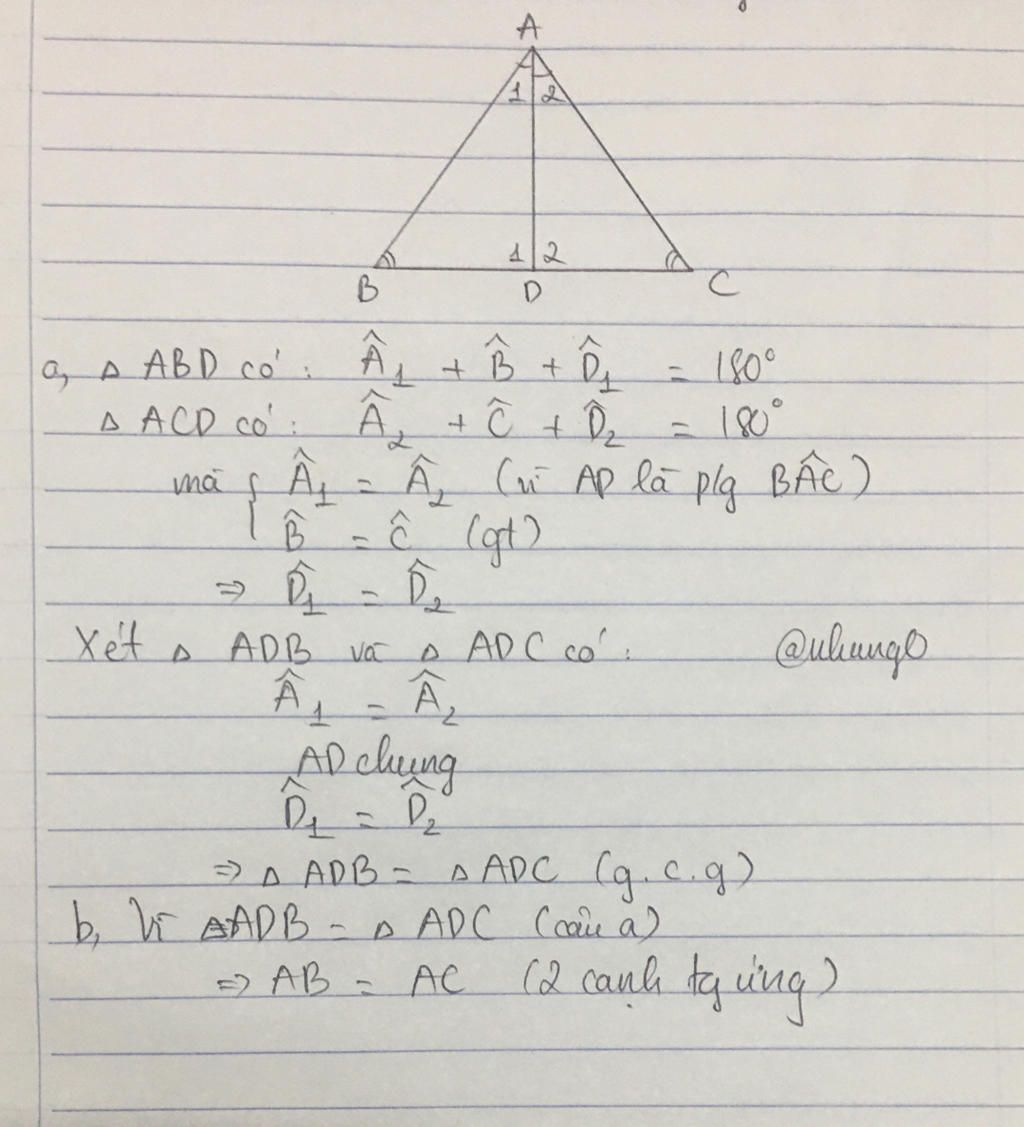 A
1 2
1 2
B D C
a, △ ABD có: Â₁ + B̂ + D̂₁ = 180°
△ ACD có: Â₂ + Ĉ + D̂₂ = 180°
mà { Â₁ = Â₂ (vì AD là p/g BÂC)
B̂ = Ĉ (gt)
⇒ D̂₁ = D̂₂
Xét △ ADB và △ ADC có:
@nhung
Â₁ = Â₂
AD chung
D̂₁ = D̂₂
⇒ △ ADB = △ ADC (g.c.g)
b, Vì △ADB = △ ADC (câu a)
⇒ AB = AC (2 cạnh tg ứng)